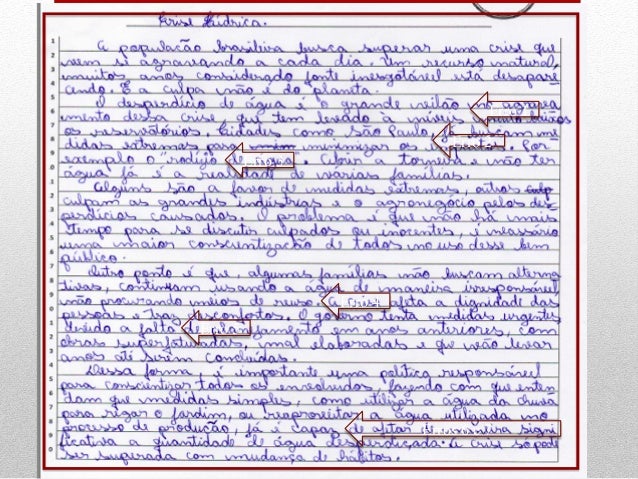 Crise Hídrica.
A população brasileira busca superar uma crise que
vem se agravando a cada dia. Um recurso natural,
muitos anos considerado fonte inesgotável está desapare
cendo. E a culpa não é do planeta.
O desperdício de água é o grande vilão no agrava
mento dessa crise, que tem levado à níveis muito baixos
os reservatórios. Cidades como São Paulo, já buscam me
didas extremas para minimizar os impactos. Por
exemplo o "rodízio de água". Abrir a torneira e não ter
água já é a realidade de várias famílias.
Alguns são a favor de medidas extremas, outros culp
culpam as grandes indústrias e o agronegócio pelos des
perdícios causados. O problema é que não há mais
tempo para se discutir culpados ou inocentes, é necessário
uma maior conscientização de todos no uso desse bem
público.
Outro ponto é que, algumas famílias não buscam alterna
tivas, continuam usando a água de maneira irresponsável
não procurando meios de reuso. A crise afeta a dignidade das
pessoas e traz desconfortos. O governo tenta medidas urgentes
devido a falta de planejamento em anos anteriores, com
obras superfaturadas, mal elaboradas e que vão levar
anos até serem concluídas.
Dessa forma, é importante uma política responsável
para conscientizar todos os envolvidos, fazendo com que enten
dam que medidas simples, como utilizar a água da chuva
para regar o jardim, ou reaproveitar a água utilizada no
processo de produção, já é capaz de afetar de maneira signi
ficativa a quantidade de água desperdiçada. A crise só pode
ser superada com mudança de hábitos.